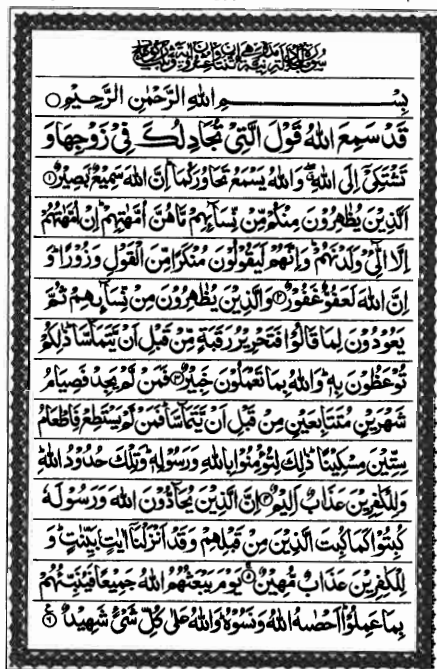 بِسْمِ اللهِ الرَّحْمٰنِ الرَّحِيْمِ
قَدْ سَمِعَ اللهُ قَوْلَ الَّتِيْ تُجَادِلُكَ فِيْ زَوْجِهَا وَ
تَشْتَكِيْٓ اِلَى اللهِ ۖ وَاللهُ يَسْمَعُ تَحَاوُرَكُمَا ؕ اِنَّ اللهَ سَمِيْعٌۢ بَصِيْرٌ ۝۱
اَلَّذِيْنَ يُظٰهِرُوْنَ مِنْكُمْ مِّنْ نِّسَآئِهِمْ مَّا هُنَّ اُمَّهٰتِهِمْ ؕ اِنْ اُمَّهٰتُهُمْ
اِلَّا الّٰٓـِٔيْ وَلَدْنَهُمْ ؕ وَاِنَّهُمْ لَيَقُوْلُوْنَ مُنْكَرًا مِّنَ الْقَوْلِ وَزُوْرًا ؕ وَ
اِنَّ اللهَ لَعَفُوٌّ غَفُوْرٌ ۝۲ وَالَّذِيْنَ يُظٰهِرُوْنَ مِنْ نِّسَآئِهِمْ ثُمَّ
يَعُوْدُوْنَ لِمَا قَالُوْا فَتَحْرِيْرُ رَقَبَةٍ مِّنْ قَبْلِ اَنْ يَّتَمَآسَّا ؕ ذٰلِكُمْ
تُوْعَظُوْنَ بِهٖ ؕ وَاللهُ بِمَا تَعْمَلُوْنَ خَبِيْرٌ ۝۳ فَمَنْ لَّمْ يَجِدْ فَصِيَامُ
شَهْرَيْنِ مُتَتَابِعَيْنِ مِنْ قَبْلِ اَنْ يَّتَمَآسَّا ۚ فَمَنْ لَّمْ يَسْتَطِعْ فَاِطْعَامُ
سِتِّيْنَ مِسْكِيْنًا ؕ ذٰلِكَ لِتُؤْمِنُوْا بِاللهِ وَرَسُوْلِهٖ ؕ وَتِلْكَ حُدُوْدُ اللهِ ؕ
وَلِلْكٰفِرِيْنَ عَذَابٌ اَلِيْمٌ ۝۴ اِنَّ الَّذِيْنَ يُحَآدُّوْنَ اللهَ وَرَسُوْلَهٗ
كُبِتُوْا كَمَا كُبِتَ الَّذِيْنَ مِنْ قَبْلِهِمْ وَقَدْ اَنْزَلْنَآ اٰيٰتٍۢ بَيِّنٰتٍ ؕ وَ
لِلْكٰفِرِيْنَ عَذَابٌ مُّهِيْنٌ ۝۵ يَوْمَ يَبْعَثُهُمُ اللهُ جَمِيْعًا فَيُنَبِّئُهُمْ
بِمَا عَمِلُوْا ؕ اَحْصٰىهُ اللهُ وَنَسُوْهُ ؕ وَاللهُ عَلٰى كُلِّ شَيْءٍ شَهِيْدٌ ۝۶ ع